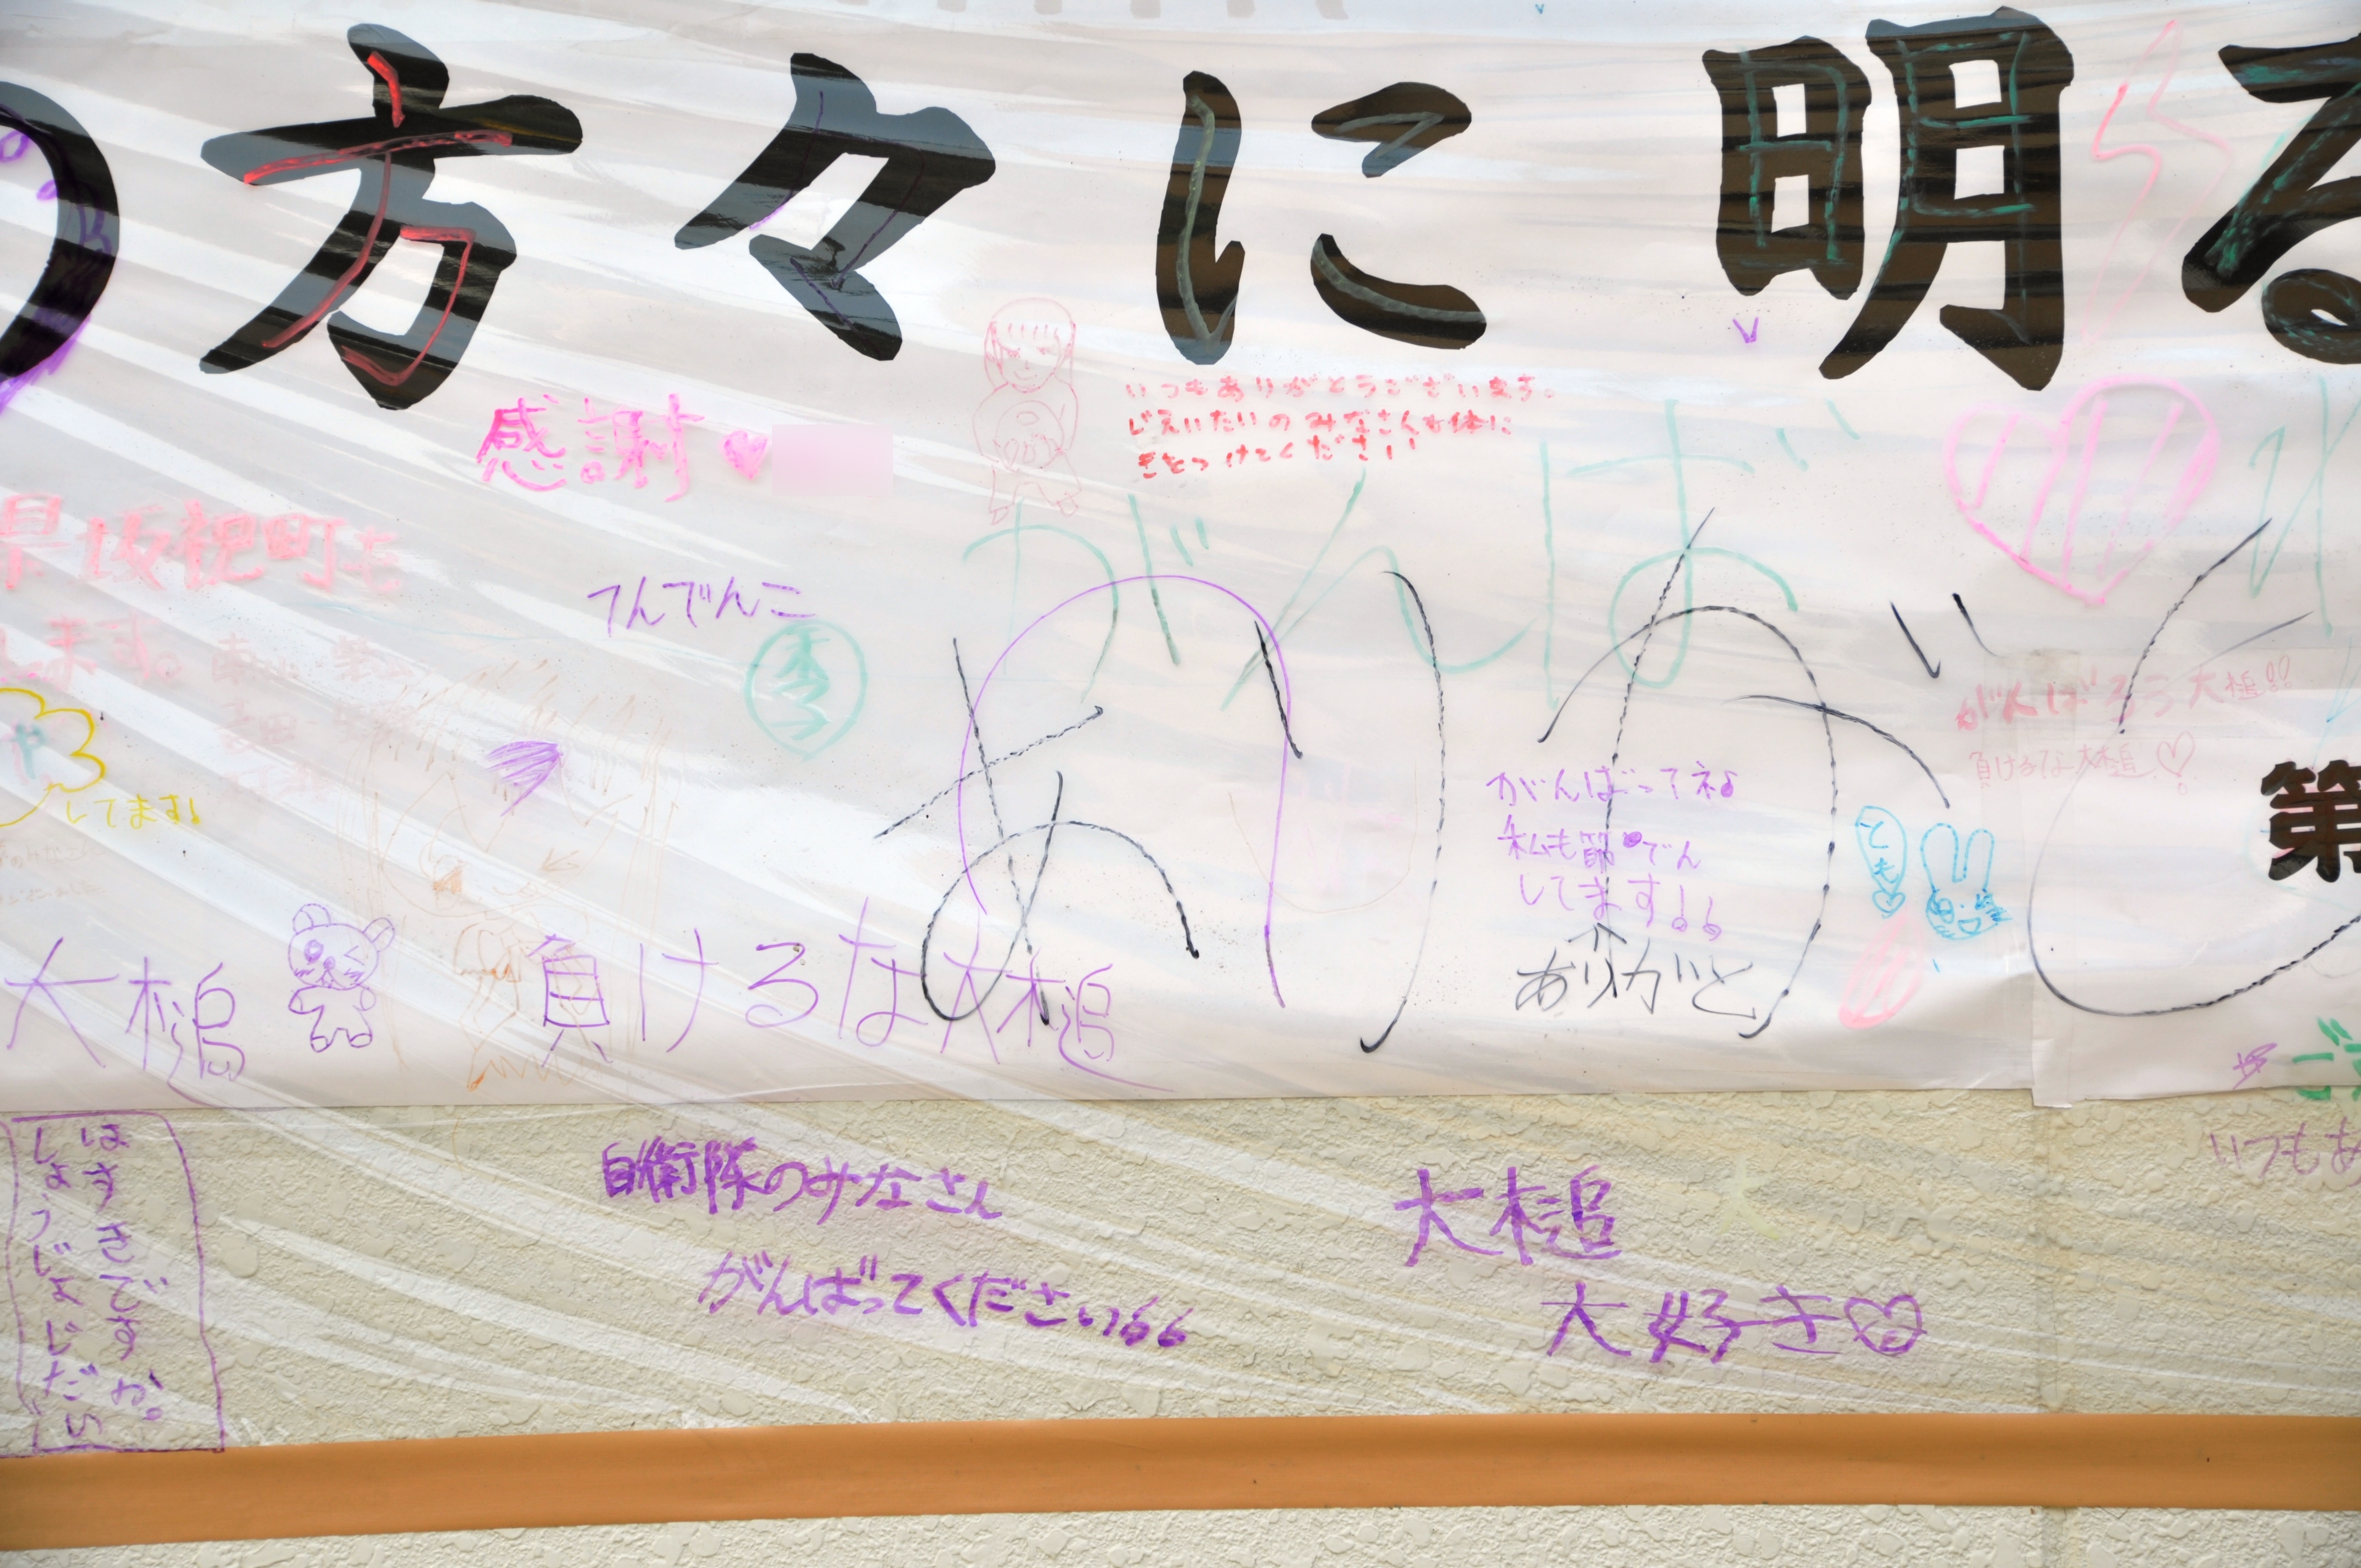 の方々に明る
感謝す
いつもありがとうございます。
じえいたいのみなさんも体に
きをつけてください
がんば
県坂祝町も
します。
てんでんこ
ありがと
がんばろう大槌!!
負けるな大槌♡
してます!
がんばってネ♪
私も節でん
してます!
ありがと
とも♡
第
大槌
負けるな大槌
はすきですか。
しょうじょじだい
自衛隊のみなさん
がんばってください
大槌
大好き♡
いつもあ